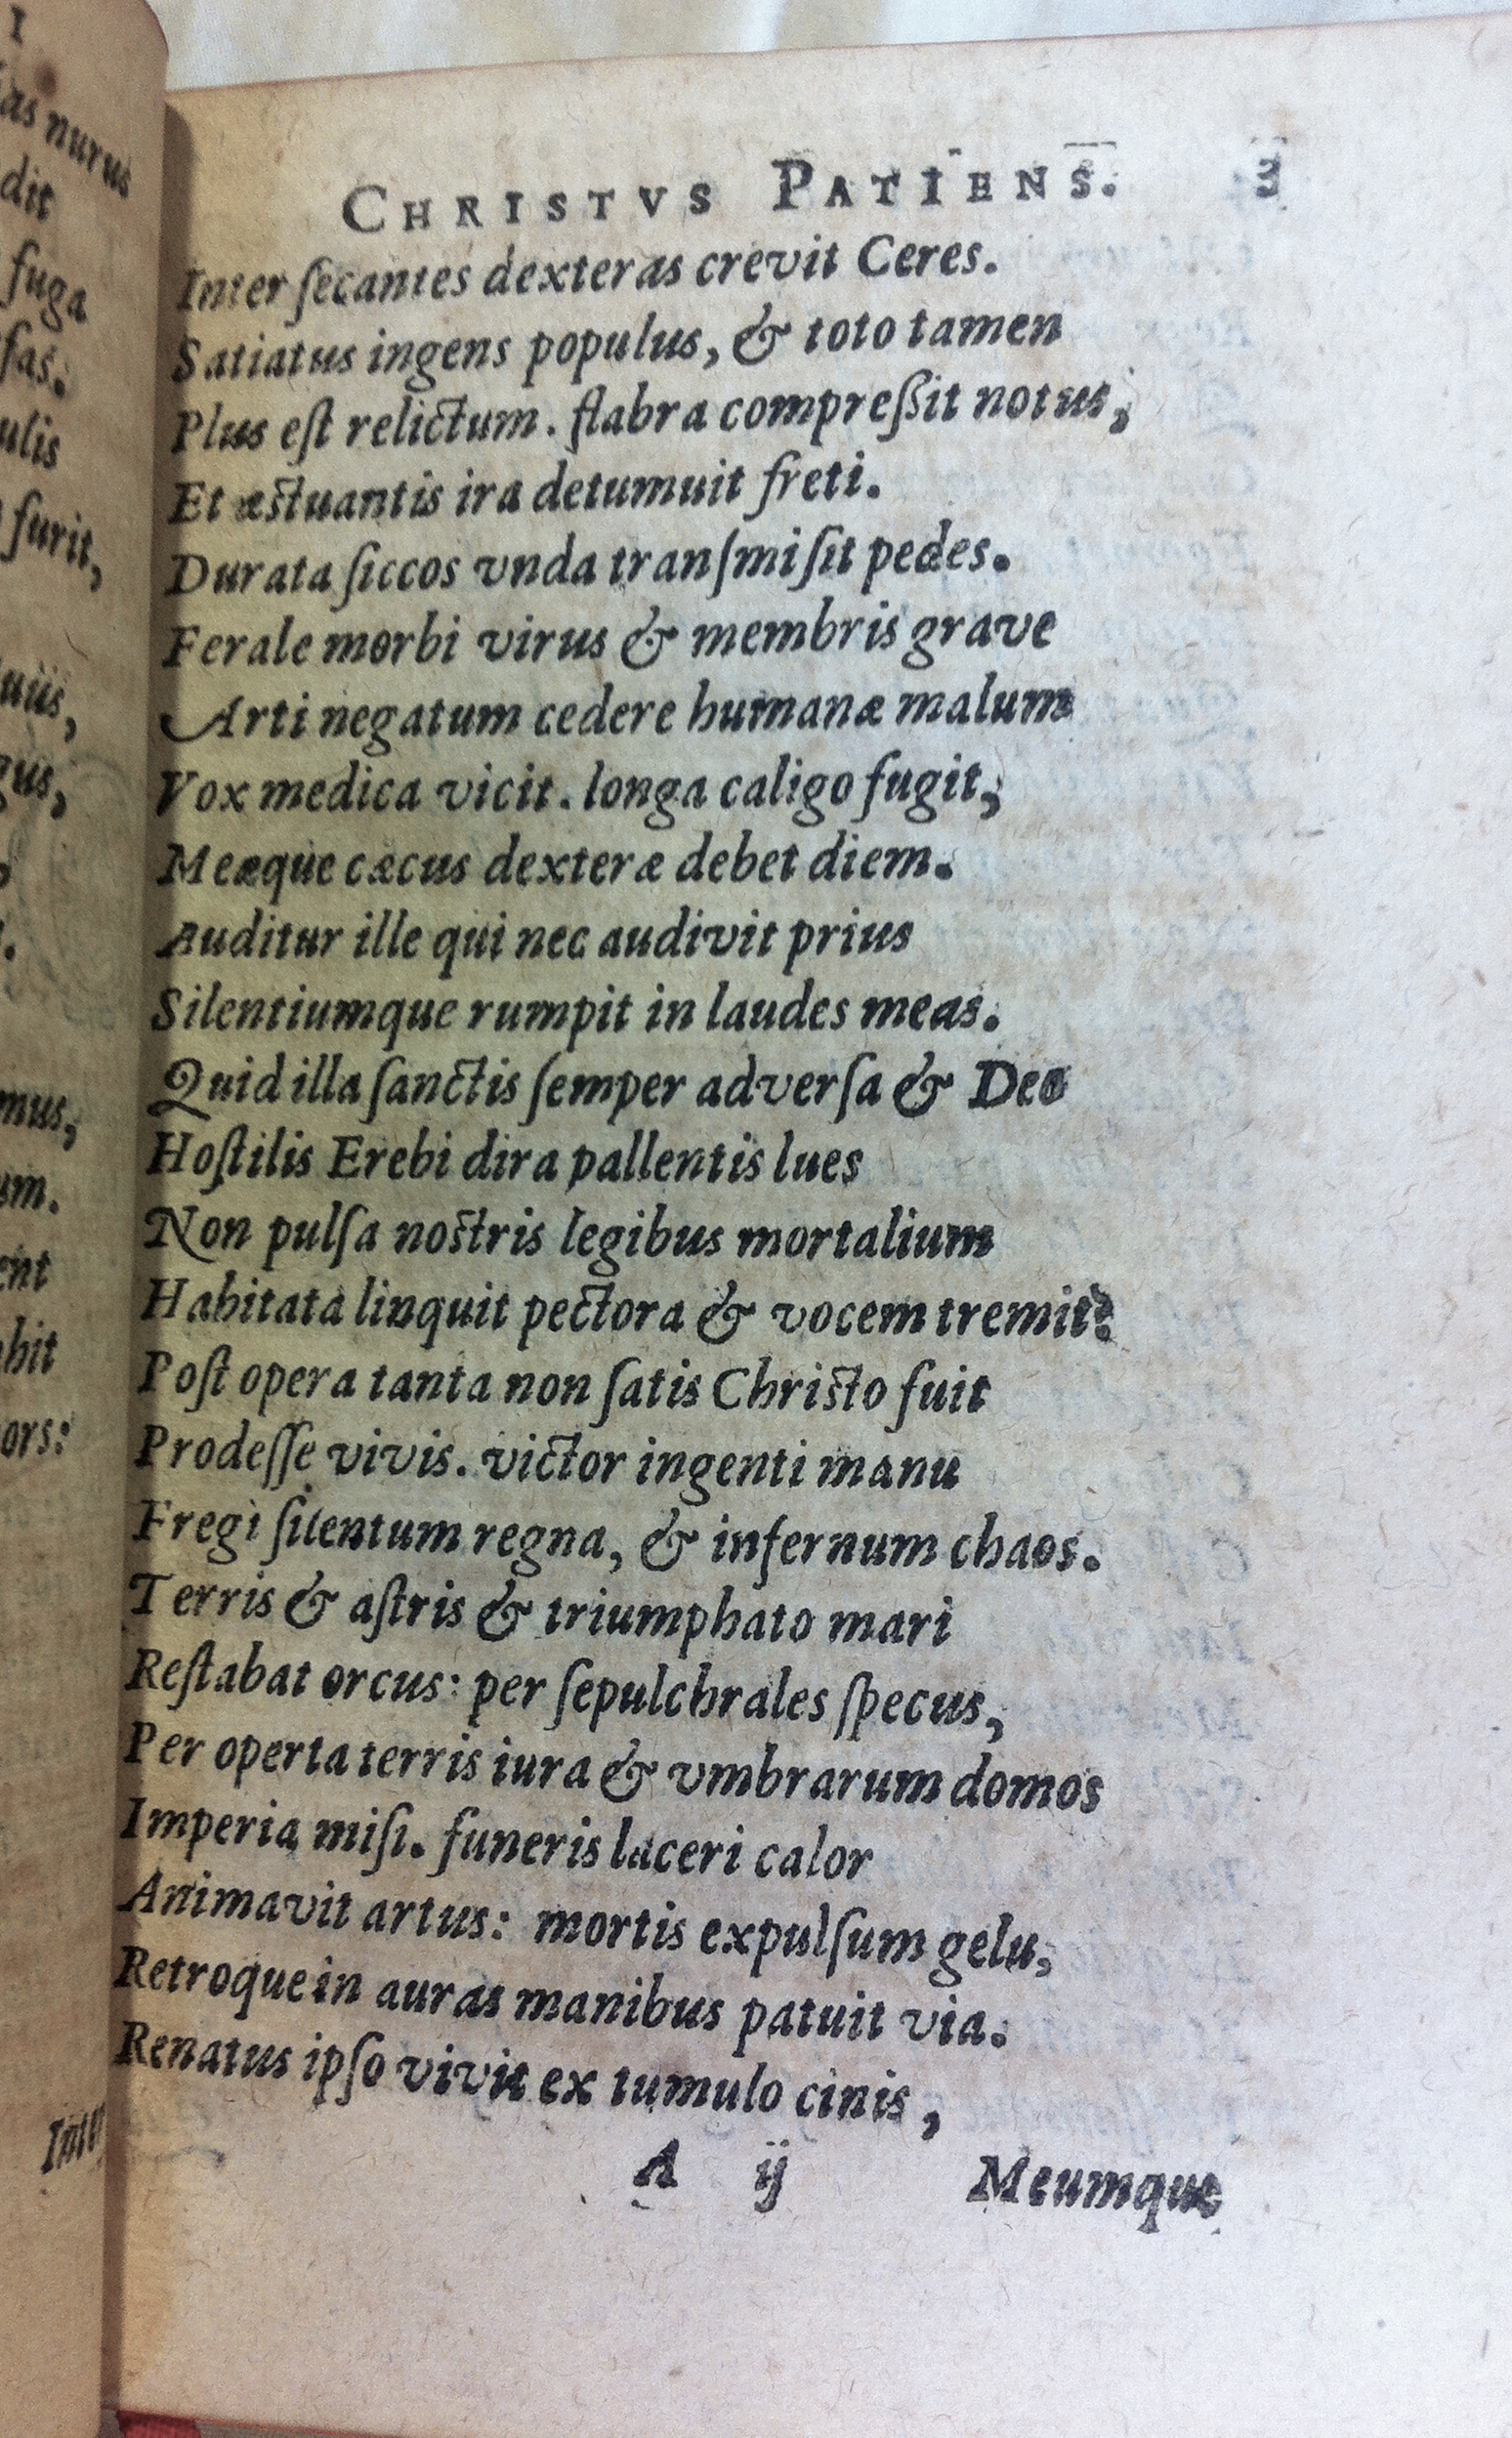 I
as nurus
dit
fuga
fas.
ulis
furit,
uiis,
gus,
mus,
um.
ent
hit
ors:
CHRISTVS PATIENS. 3
Inter ſecantes dexteras crevit Ceres.
Satiatus ingens populus, & toto tamen
Plus eſt relictum. flabra compreßit notus,
Et æſtuantis ira detumuit freti.
Durata ſiccos vnda tranſmiſit pedes.
Ferale morbi virus & membris grave
Arti negatum cedere humanæ malum
Vox medica vicit. longa caligo fugit,
Meæque cæcus dexteræ debet diem.
Auditur ille qui nec audivit prius
Silentiumque rumpit in laudes meas.
Quid illa ſanctis ſemper adverſa & Deo
Hoſtilis Erebi dira pallentis lues
Non pulſa noſtris legibus mortalium
Habitata linquit pectora & vocem tremit?
Poſt opera tanta non ſatis Chriſto fuit
Prodeſſe vivis. victor ingenti manu
Fregi ſilentum regna, & infernum chaos.
Terris & aſtris & triumphato mari
Reſtabat orcus: per ſepulchrales ſpecus,
Per operta terris iura & vmbrarum domos
Imperia miſi. funeris laceri calor
Animavit artus: mortis expulſum gelu,
Retroque in auras manibus patuit via.
Renatus ipſo vivit ex tumulo cinis,
A ij Meumque